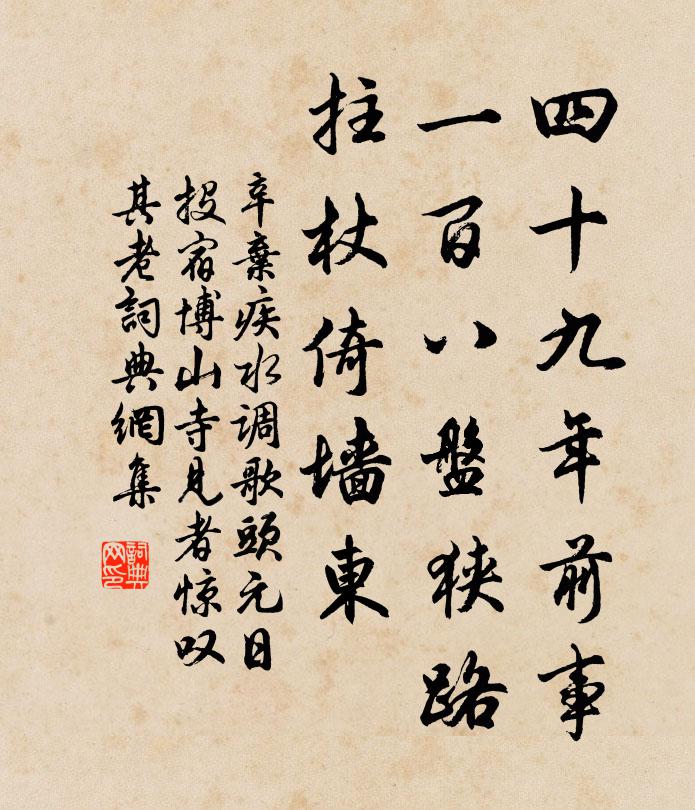 四十九年前事
一百八盤狹路
拄杖倚墙東
辛棄疾水调歌頭元日
投宿博山寺見者惊叹
其老詞典網集
詞典网印